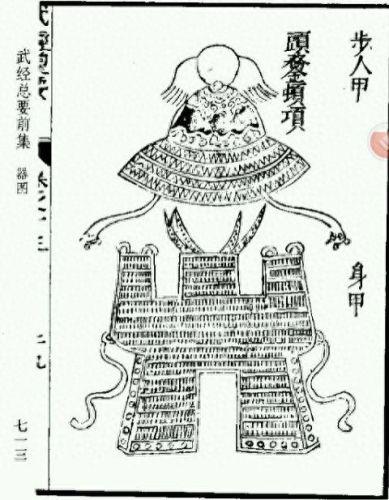 步人甲
頭鍪頓項
身甲
武经总要前集 器图
七一三